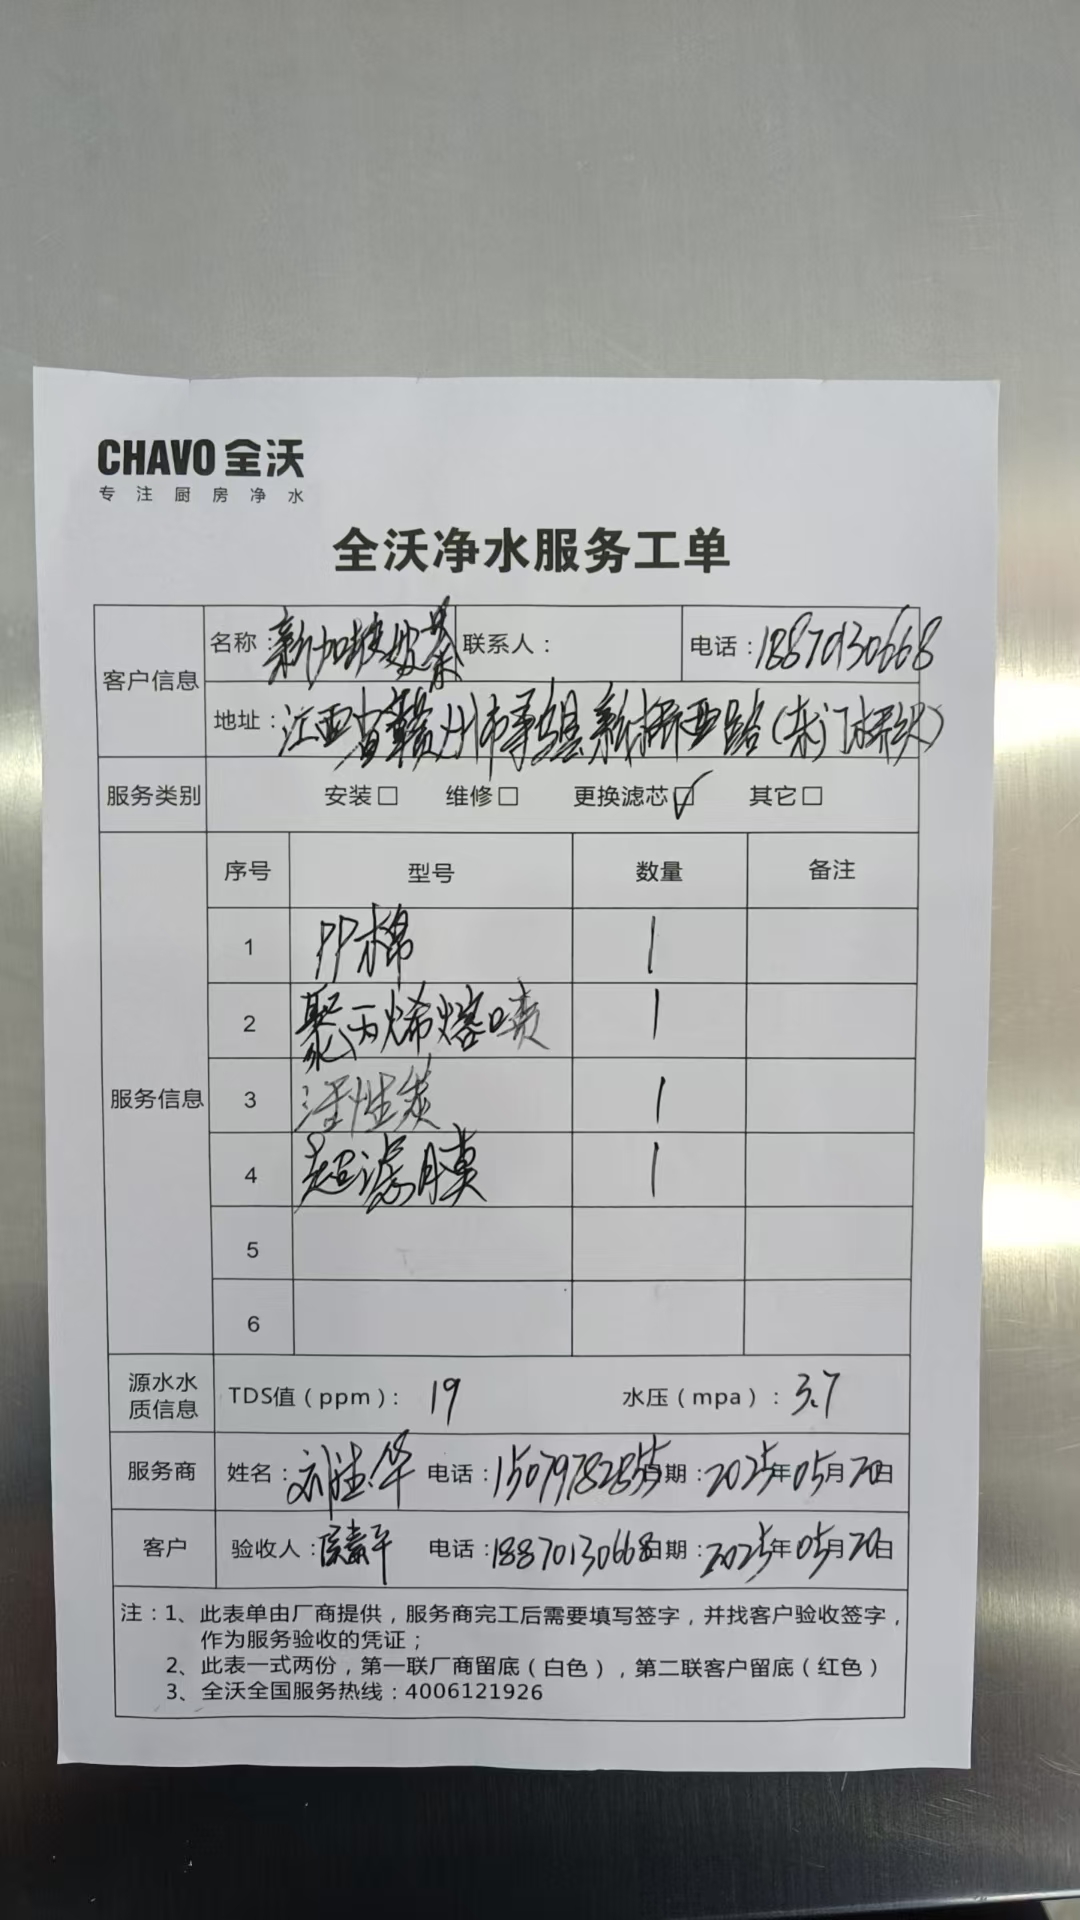 CHAVO 全沃
专注厨房净水
全沃净水服务工单
客户信息
名称：新加坡 联系人： 电话：18870130668
地址：江西省赣州市寻乌县新桥西路（东门桥头）
服务类别 安装□ 维修□ 更换滤芯☑ 其它□
服务信息
序号 型号 数量 备注
1 PP棉 1
2 聚丙烯熔喷 1
3 活性炭 1
4 超滤膜 1
5
6
源水水质信息 TDS值（ppm）：19 水压（mpa）：3.7
服务商 姓名：刘 华 电话：15079782855 日期：2025年05月20日
客户 验收人： 电话：18870130668 日期：2025年05月20日
注：1、此表单由厂商提供，服务商完工后需要填写签字，并找客户验收签字，
作为服务验收的凭证；
2、此表一式两份，第一联厂商留底（白色），第二联客户留底（红色）
3、全沃全国服务热线：4006121926